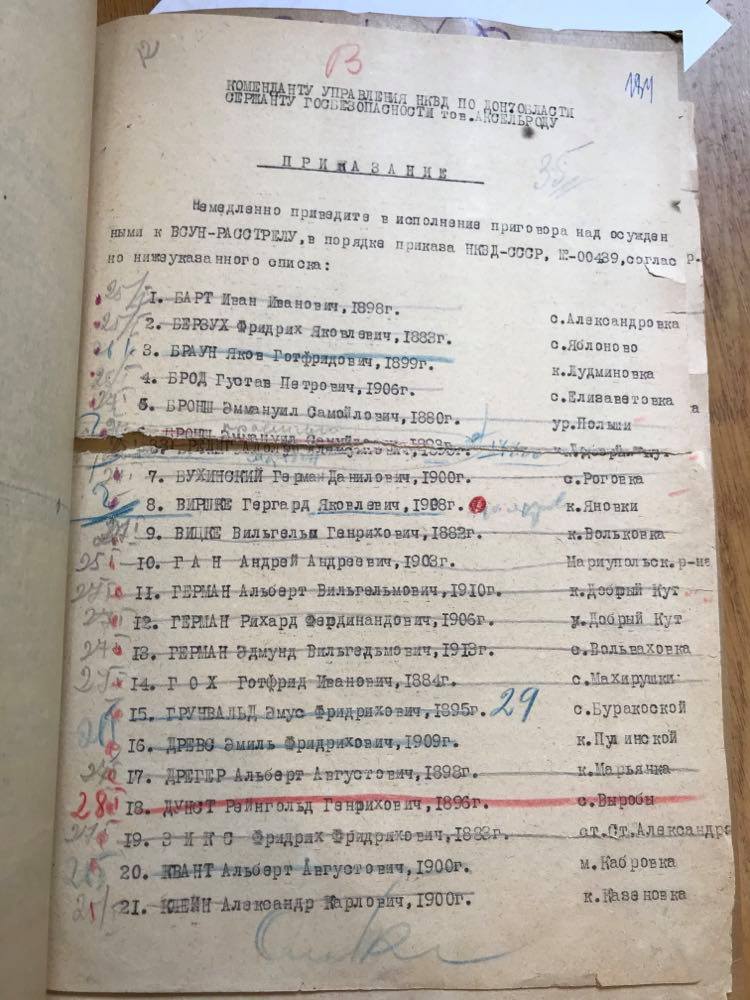 В
184
КОМЕНДАНТУ УПРАВЛЕНИЯ НКВД ПО ДОНЧОБЛАСТИ
СЕРЖАНТУ ГОСБЕЗОПАСНОСТИ тов.АКСЕЛЬРОДУ
35
ПРИКАЗАНИЕ
Немедленно приведите в исполнение приговора над осужден
ными к ВСУН-РАССТРЕЛУ,в порядке приказа НКВД-СССР, №-00439,соглас
но нижеуказанного списка:
1. БАРТ Иван Иванович,1898г. с.Александровка
2. БЕРЗУХ Фридрих Яковлевич,1883г. с.Яблоново
3. БРАУН Яков Готфридович,1899г. к.Лудминовка
4. БРОД Густав Петрович,1906г. с.Елизаветовка
5. БРОНШ Эммануил Самойлович,1880г. ур.Польши
7. БУХИНСКИЙ Герман Данилович,1900г. с.Роговка
8. ВИРШКЕ Гергард Яковлевич,1908г. к.Яновки
9. ВИЦКЕ Вильгельм Генрихович,1882г. к.Вольковка
10. Г А Н Андрей Андреевич,1903г. Мариупольск.р-на
11. ГЕРМАН Альберт Вильгельмович,1910г. к.Добрый Кут
12. ГЕРМАН Рихард Фердинандович,1906г. у.Добрый Кут
13. ГЕРМАН Эдмунд Вильгедьмович,1913г. с.Вольваховка
14. Г О Х Готфрид Иванович,1884г. с.Махирушки
15. ГРУНВАЛЬД Эмус Фридрихович,1895г. 29 с.Буракоской
16. ДРЕВС Эмиль Фридрихович,1909г. к.Пулинской
17. ДРЕГЕР Альберт Августович,1893г. к.Марьянка
28 18. ДУНСТ Рейнгольд Генрихович,1896г. с.Выробы
19. З И К С Фридрих Фридрихович,1883г. ат.Ст.Александро
20. КВАНТ Альберт Августович,1900г. м.Кабровка
21. КЛЕЙН Александр Карлович,1900г. к.Казеновка